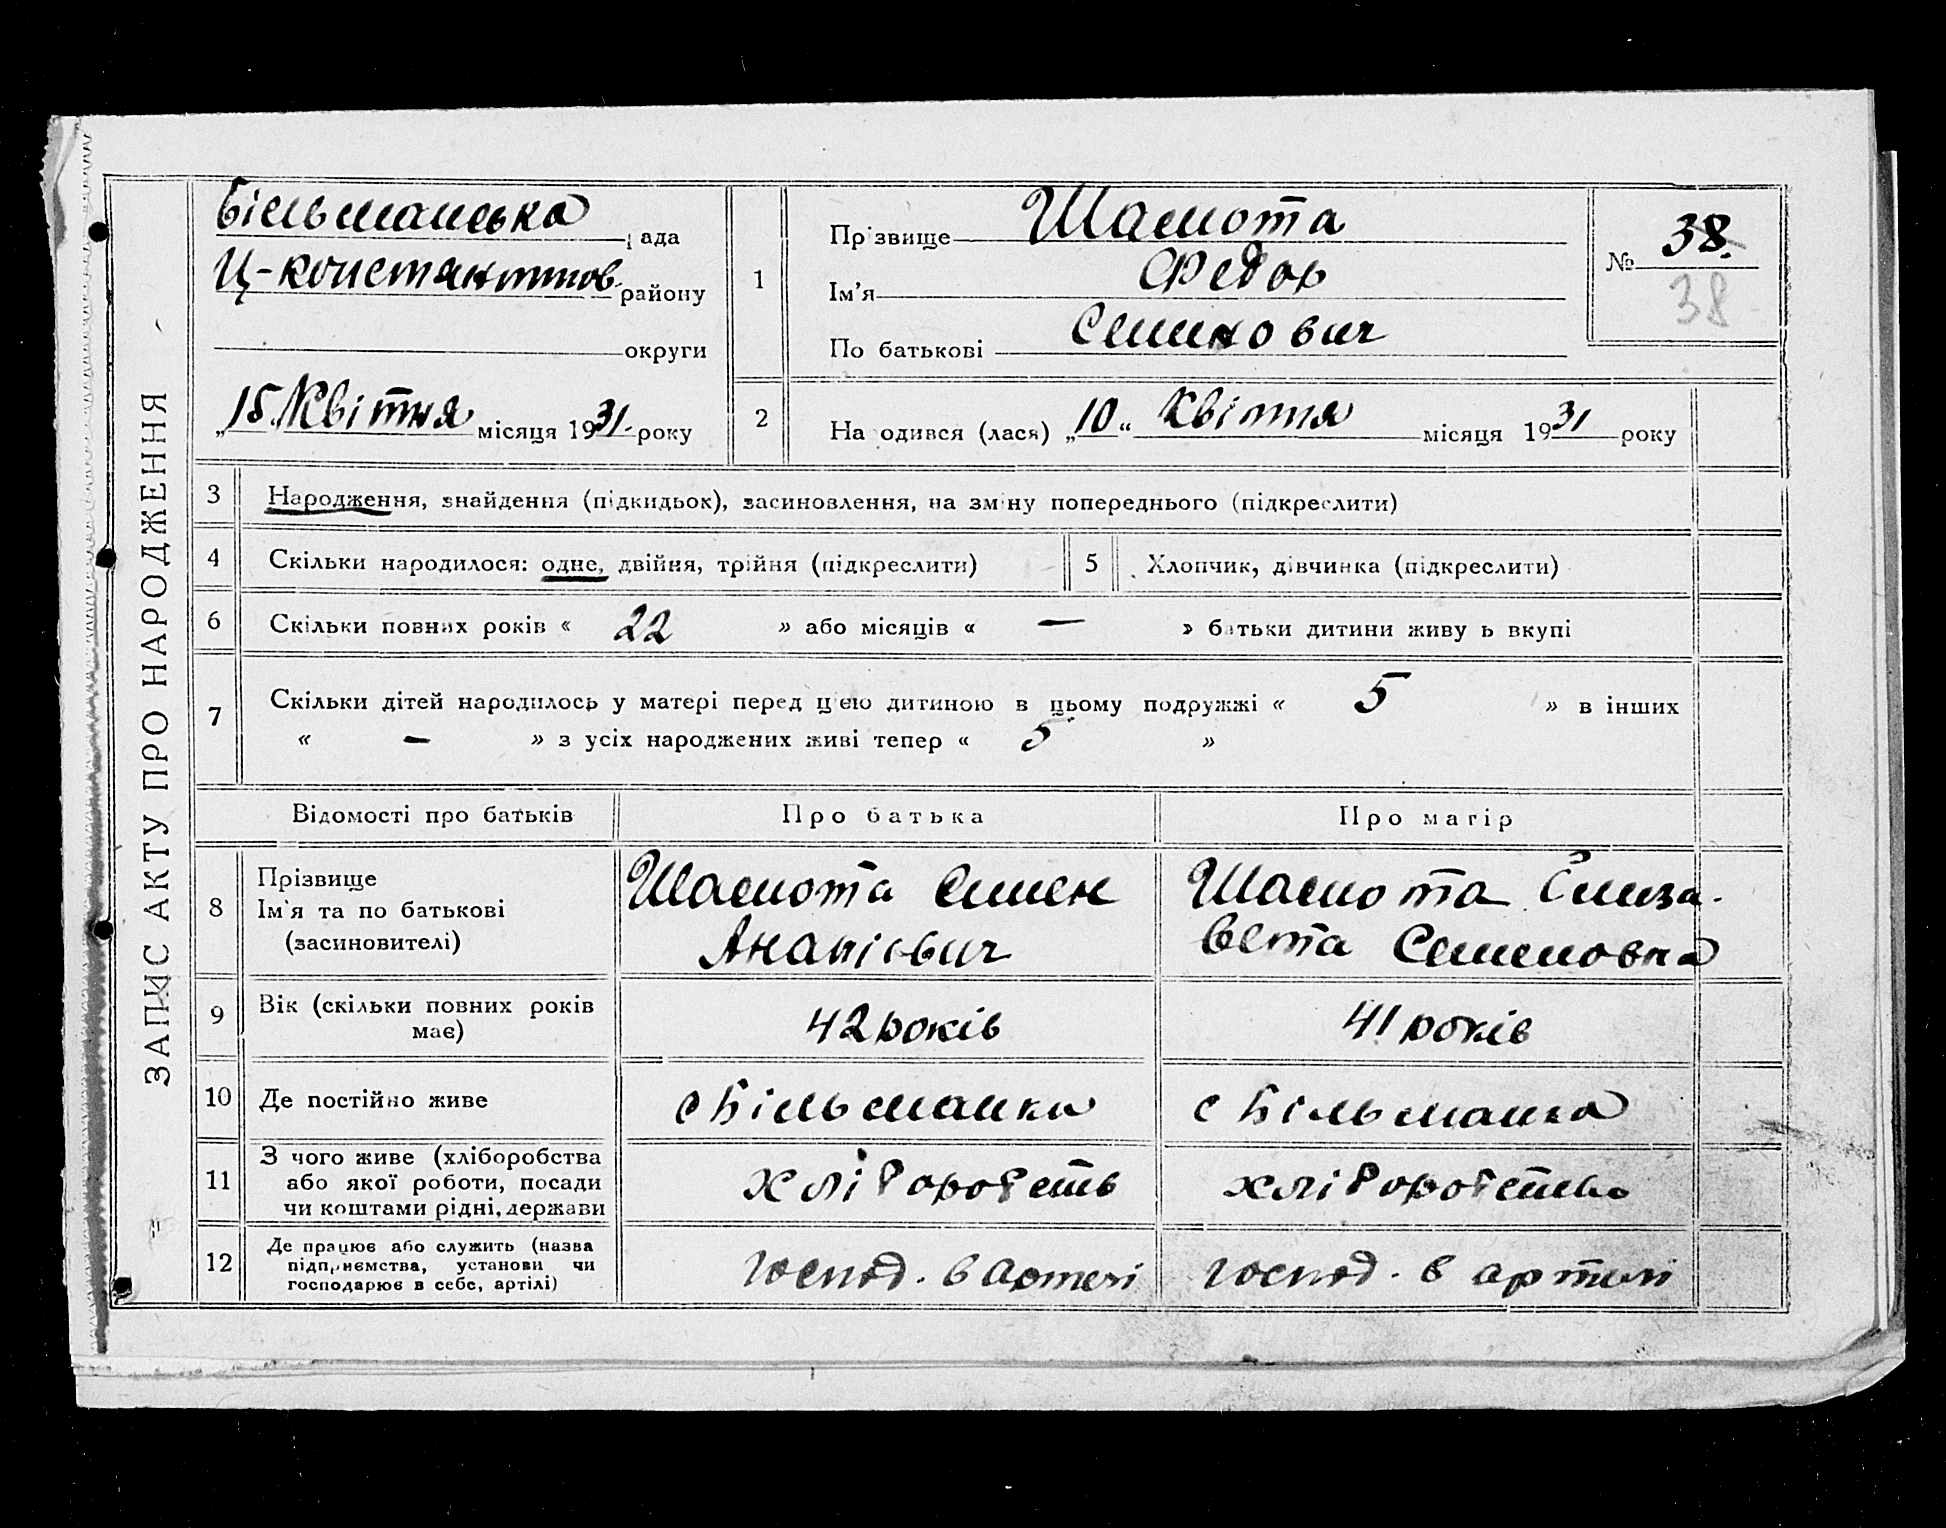 ЗАПИС АКТУ ПРО НАРОДЖЕННЯ
Більманська рада
Ц-констянтинов. району
округи
„15“ Квітня місяця 1931 року
1
Прізвище Шамота
Ім'я Федор
По батькові Семенович
№ 38.
38
2
Народився (лася) „10“ Квітня місяця 1931 року
3 Народження, знайдення (підкидьок), засиновлення, на зміну попереднього (підкреслити)
4 Скільки народилося: одне, двійня, трійня (підкреслити)
5 Хлопчик, дівчинка (підкреслити)
6 Скільки повних років « 22 » або місяців « — » батьки дитини живуть вкупі
7 Скільки дітей народилось у матері перед цією дитиною в цьому подружжі « 5 » в інших
« — » з усіх народжених живі тепер « 5 »
Відомості про батьків Про батька Про матір
8 Прізвище
Ім'я та по батькові
(засиновителі)
Шамота Семен
Шамота Єлиза-
вета Семеновна
9 Вік (скільки повних років
має)
42 років
41 років
10 Де постійно живе
с Більманка
с Більманка
11 З чого живе (хліборобства
або якої роботи, посади
чи коштами рідні, держави
хліборобств
хліборобство
12 Де працює або служить (назва
підприємства, установи чи
господарює в себе, артілі)
господ. в артелі
господ. в артелі